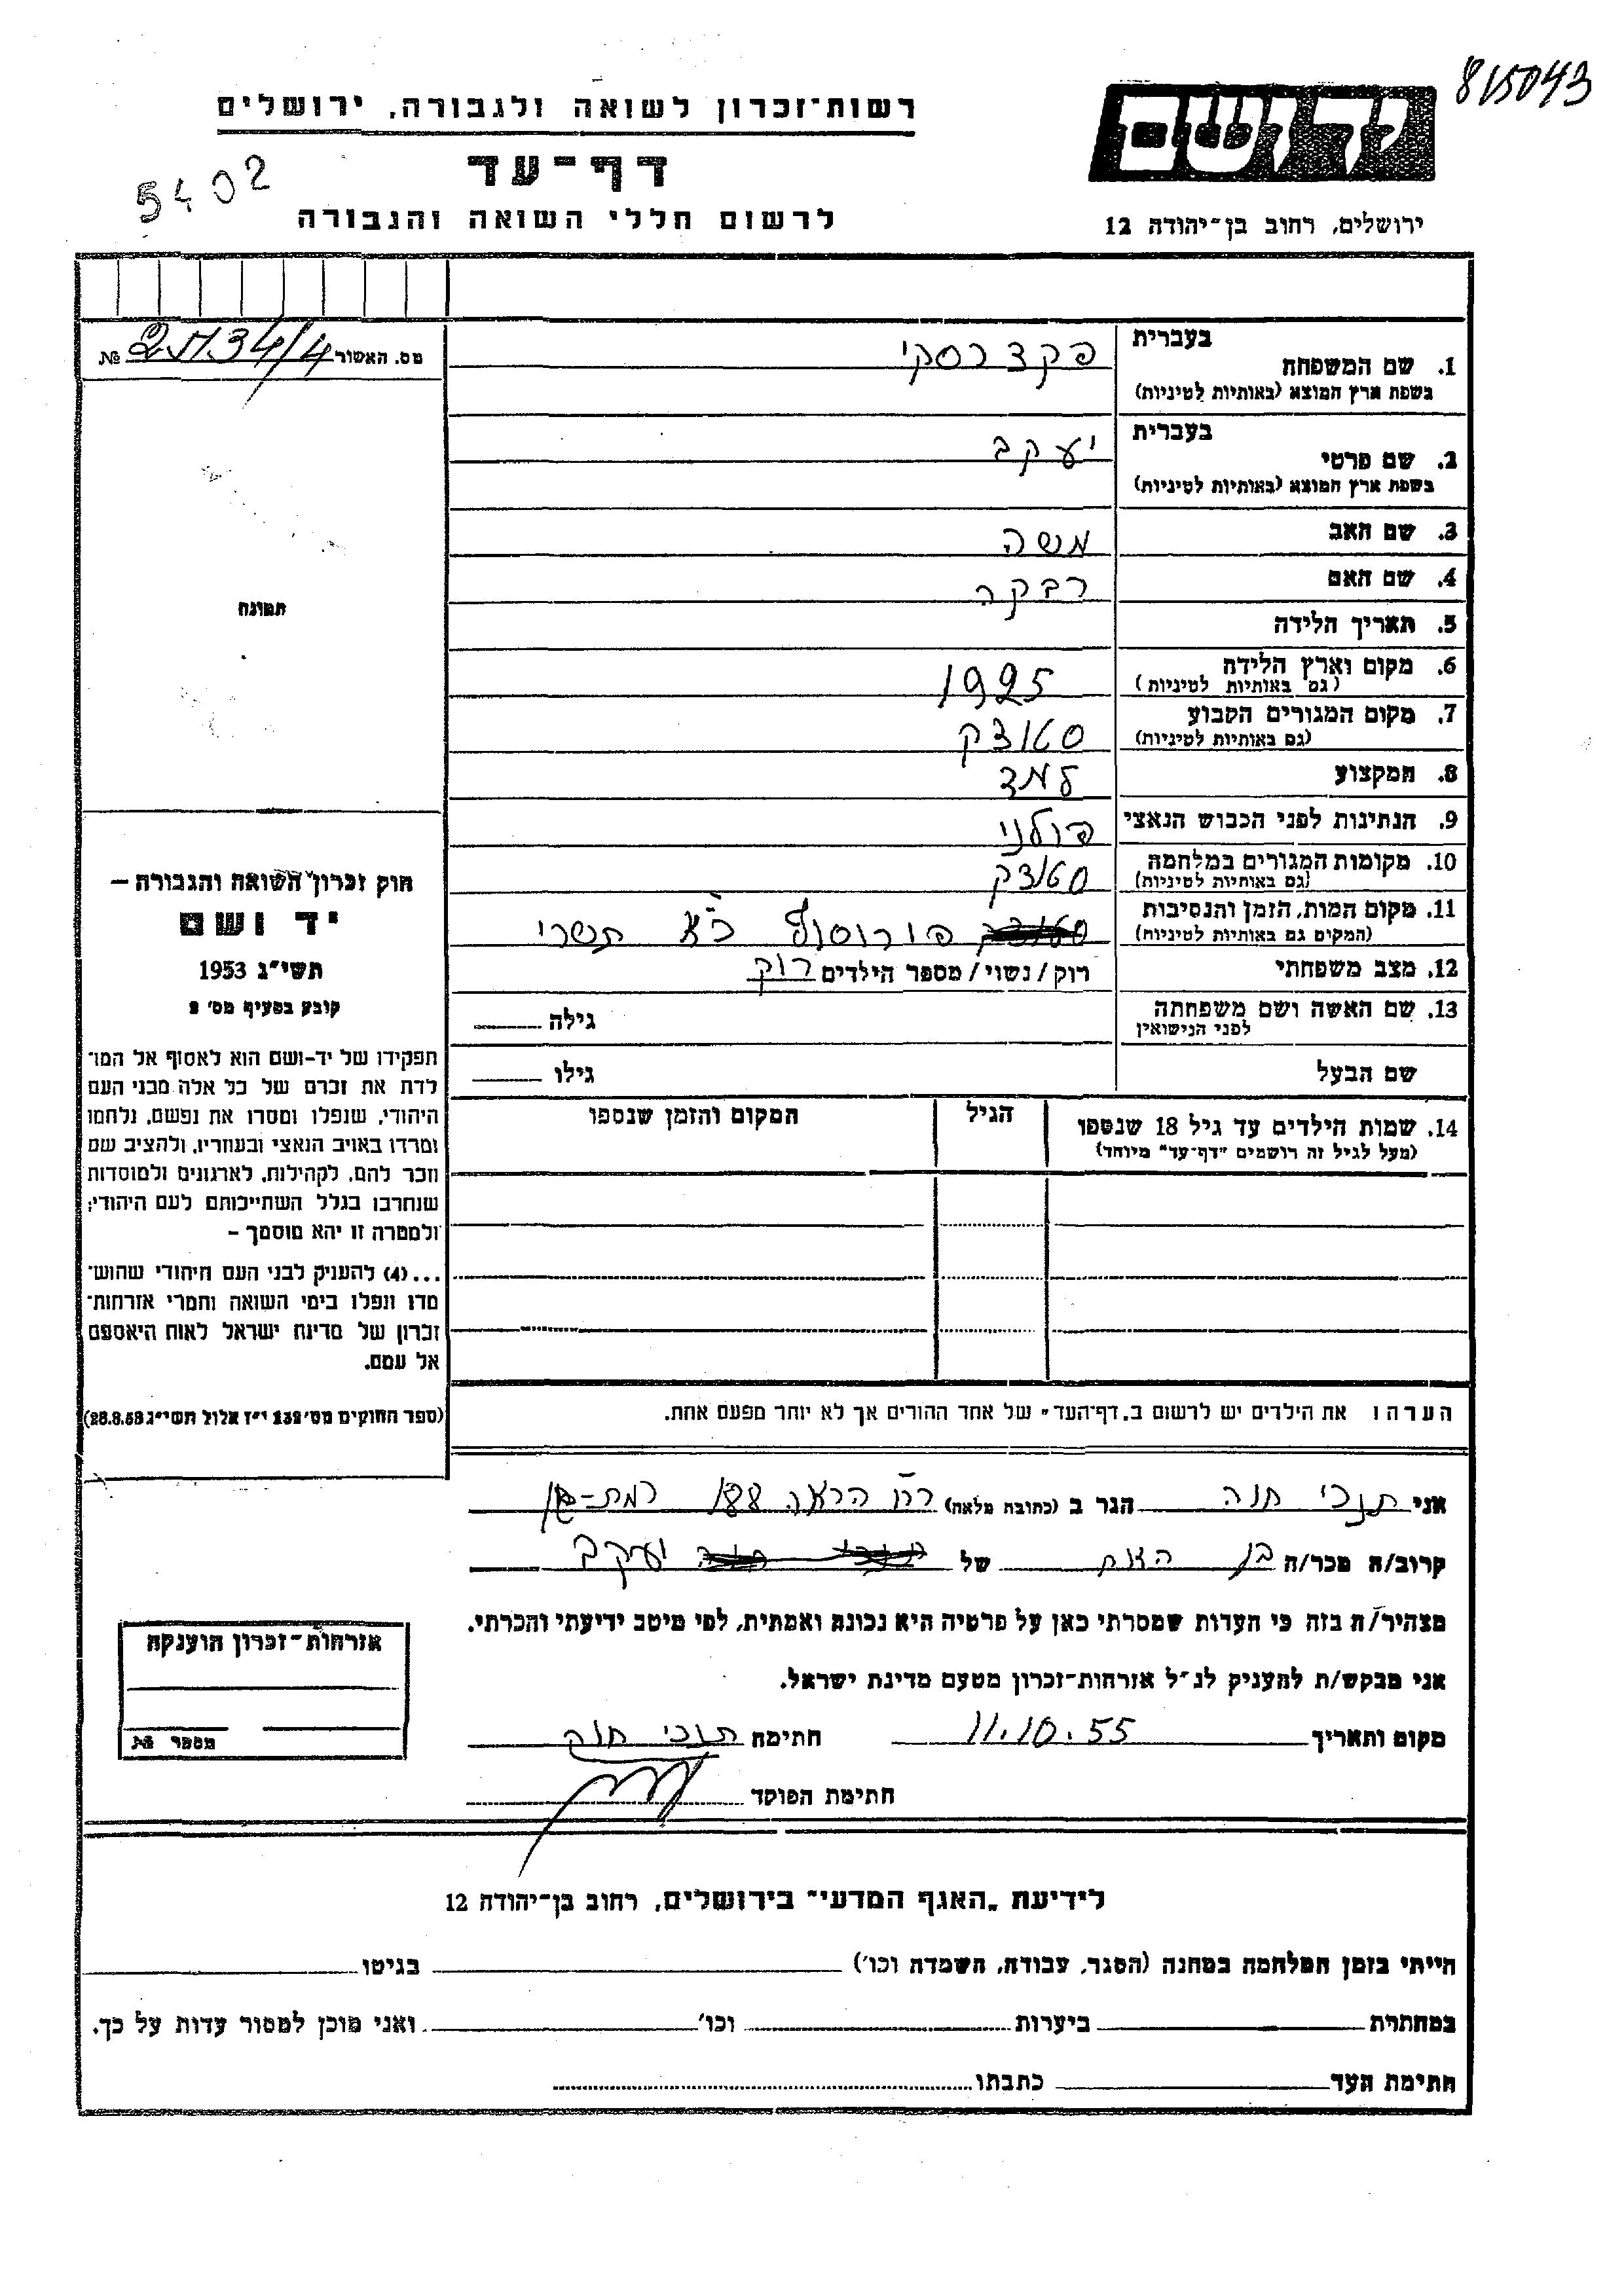 815043
רשות־זכרון לשואה ולגבורה, ירושלים
ידושם
5402
דף־עד
לרשום חללי השואה והגבורה
ירושלים, רחוב בן־יהודה 12
מס. האשור №
1. שם המשפחה בעברית
בשפת ארץ המוצא (באותיות לטיניות)
2. שם פרטי בעברית יעקב
בשפת ארץ המוצא (באותיות לטיניות)
3. שם האב משה
4. שם האם רבקה
5. תאריך הלידה
6. מקום וארץ הלידה 1925
(גם באותיות לטיניות)
7. מקום המגורים הקבוע סטוצק
(גם באותיות לטיניות)
8. המקצוע למד
9. הנתינות לפני הכבוש הנאצי פולני
10. מקומות המגורים במלחמה סטוצק
(גם באותיות לטיניות)
11. מקום המות, הזמן והנסיבות פורוסוף כ"א תשרי
(המקום גם באותיות לטיניות)
12. מצב משפחתי רוק / נשוי / מספר הילדים רוק
13. שם האשה ושם משפחתה גילה
לפני הנישואין
שם הבעל גילו
14. שמות הילדים עד גיל 18 שנספו הגיל המקום והזמן שנספו
(מעל לגיל זה רושמים "דף־עד" מיוחד)
תמונה
חוק זכרון השואה והגבורה –
יד ושם
תשי"ג 1953
קובע בסעיף מס' 2
תפקידו של יד-ושם הוא לאסוף אל המו־
לדת את זכרם של כל אלה מבני העם
היהודי, שנפלו ומסרו את נפשם, נלחמו
ומרדו באויב הנאצי ובעוזריו, ולהציב שם
וזכר להם, לקהילות, לארגונים ולמוסדות
שנחרבו בגלל השתייכותם לעם היהודי;
ולמטרה זו יהא מוסמך –
...(4) להעניק לבני העם היהודי שהוש־
מדו ונפלו בימי השואה והמרי אזרחות־
זכרון של מדינת ישראל לאות היאספם
אל עמם.
(ספר החוקים מס' 132 י"ז אלול תשי"ג 28.8.53)
הערה: את הילדים יש לרשום ב„דף־העד" של אחד ההורים אך לא יותר מפעם אחת.
אני תנכי חנה הגר ב (כתובת מלאה) רח' הרא"ה 188 רמת-גן
קרוב/ה מכר/ה בן האח של יעקב
מצהיר/ה בזה כי העדות שמסרתי כאן על פרטיה היא נכונה ואמתית, לפי מיטב ידיעתי והכרתי.
אני מבקש/ת להעניק לנ"ל אזרחות-זכרון מטעם מדינת ישראל.
מקום ותאריך 11.10.55 חתימה תנכי חנה
חתימת הפוקד
אזרחות-זכרון הוענקה
מספר №
לידיעת „האגף המדעי" בירושלים, רחוב בן-יהודה 12
הייתי בזמן המלחמה במחנה (הסגר, עבודה, השמדה וכו') בגיטו
במחתרת ביערות וכו' ואני מוכן למסור עדות על כך.
חתימת העד כתבתו